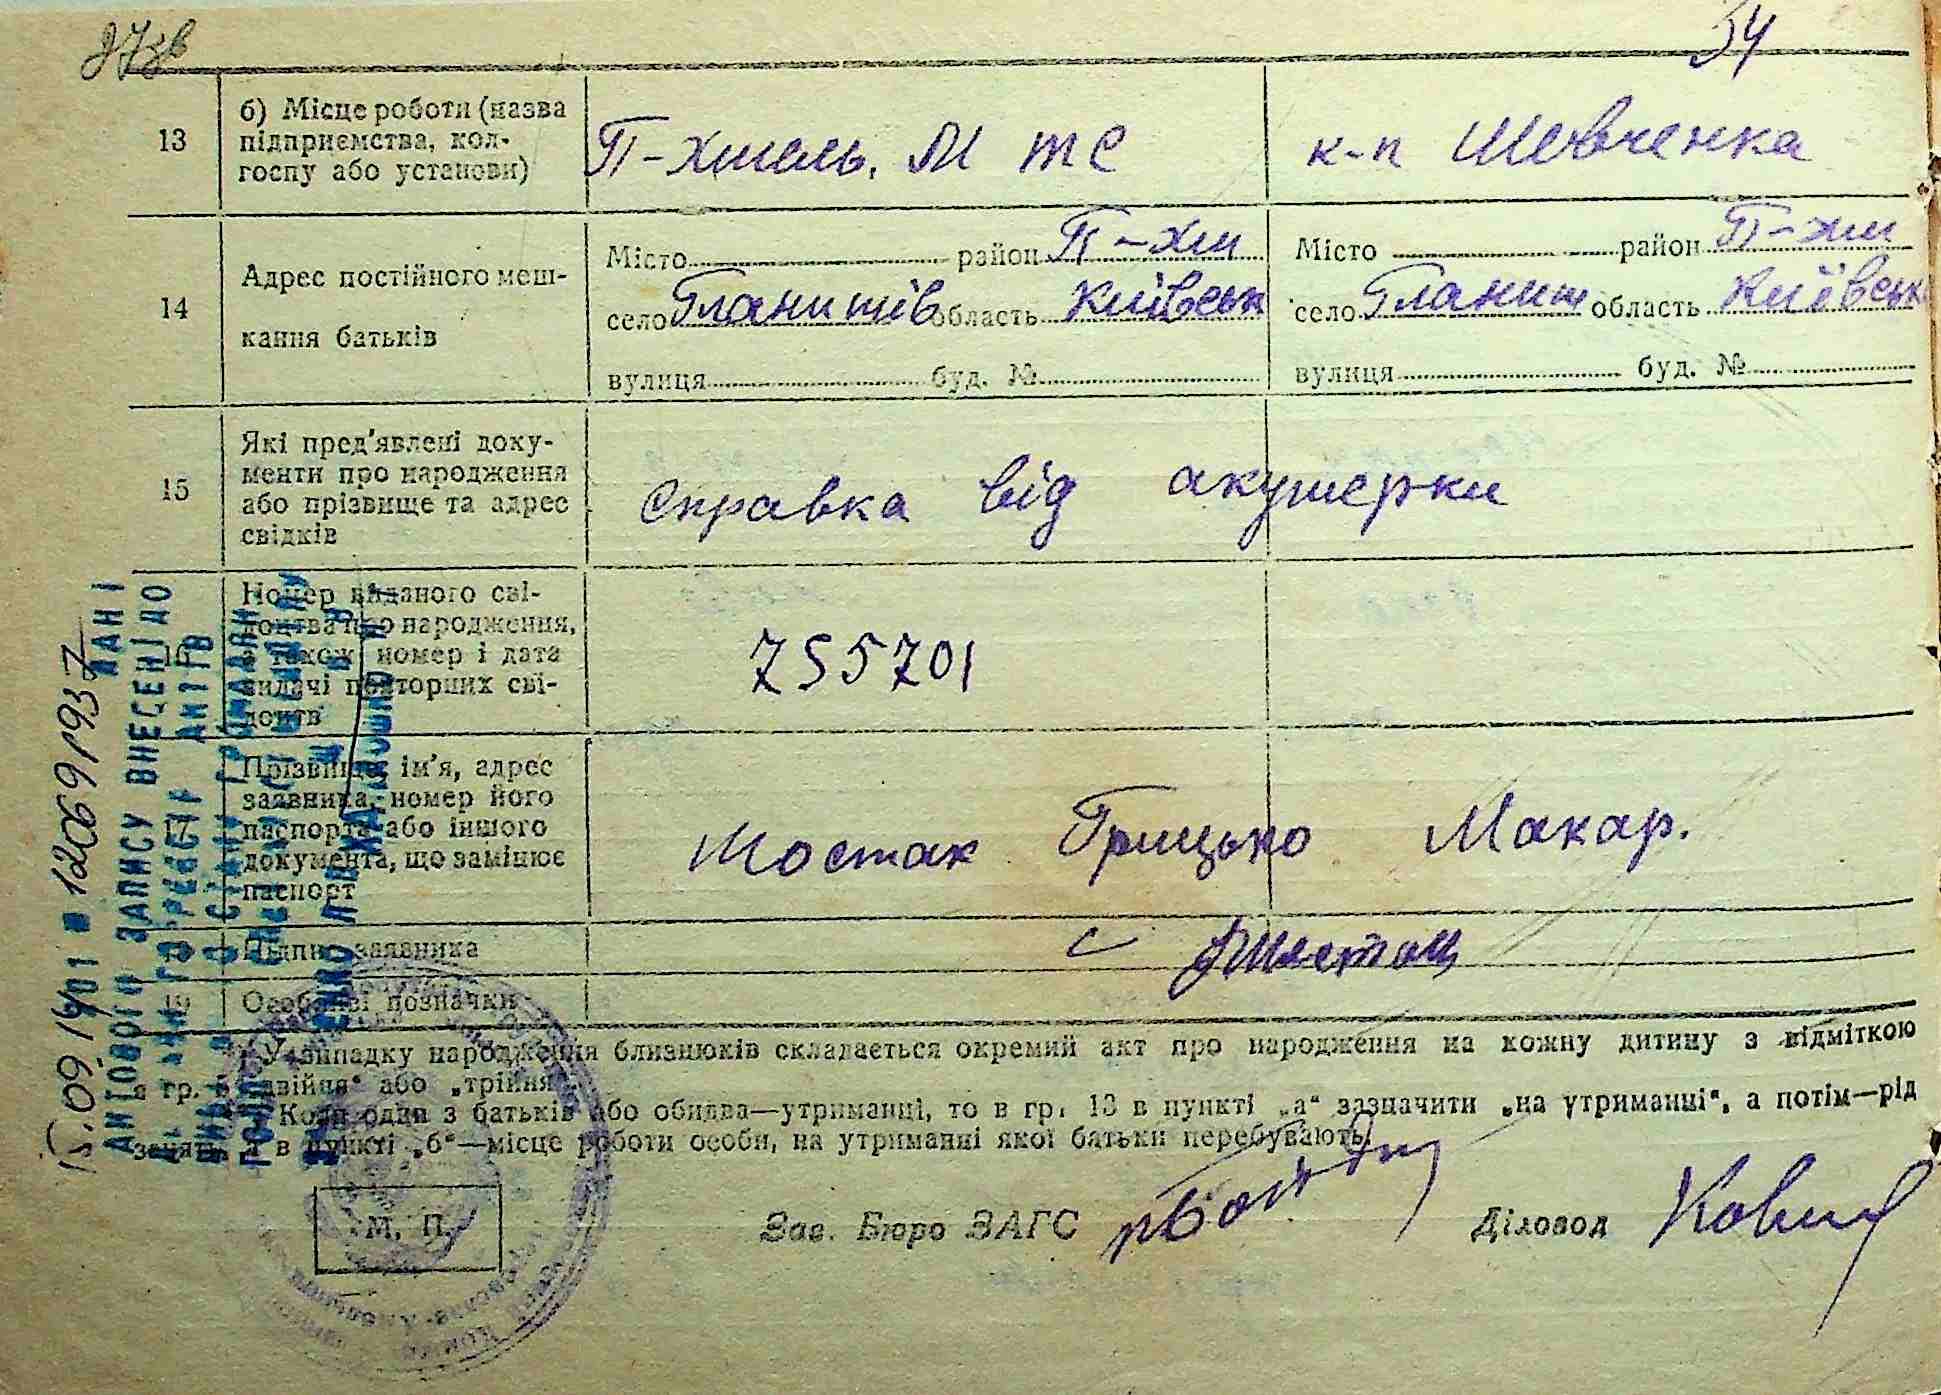 54
13
б) Місце роботи (назва
підприємства, кол-
госпу або установи)
П-хмель. М т с
к-п Шевченка
14
Адрес постійного меш-
кання батьків
Місто район П-хм
село Гланишів область Київськ
вулиця буд. №
Місто район П-хм
село Гланиш область Київськ
вулиця буд. №
15
Які пред'явлені доку-
менти про народження
або прізвище та адрес
свідків
справка від акушерки
16
Номер виданого сві-
доцтва про народження,
а також номер і дата
видачі повторних сві-
доцтв
755701
17
Прізвище, ім'я, адрес
заявника, номер його
паспорта або іншого
документа, що замінює
паспорт
Шостак Грицько Макар.
18
Підпис заявника
19
Особливі позначки
У випадку народження близнюків складається окремий акт про народження на кожну дитину з відміткою
в гр. „двійня“ або „трійня“
Коли один з батьків або обидва—утриманці, то в гр. 13 в пункті „а“ зазначити „на утриманні“, а потім—рід
занять, а в пункті „б“—місце роботи особи, на утриманні якої батьки перебувають.
М. П.
Зав. Бюро ЗАГС
Діловод
АКТОВОГО ЗАПИСУ ВНЕСЕНІ ДО